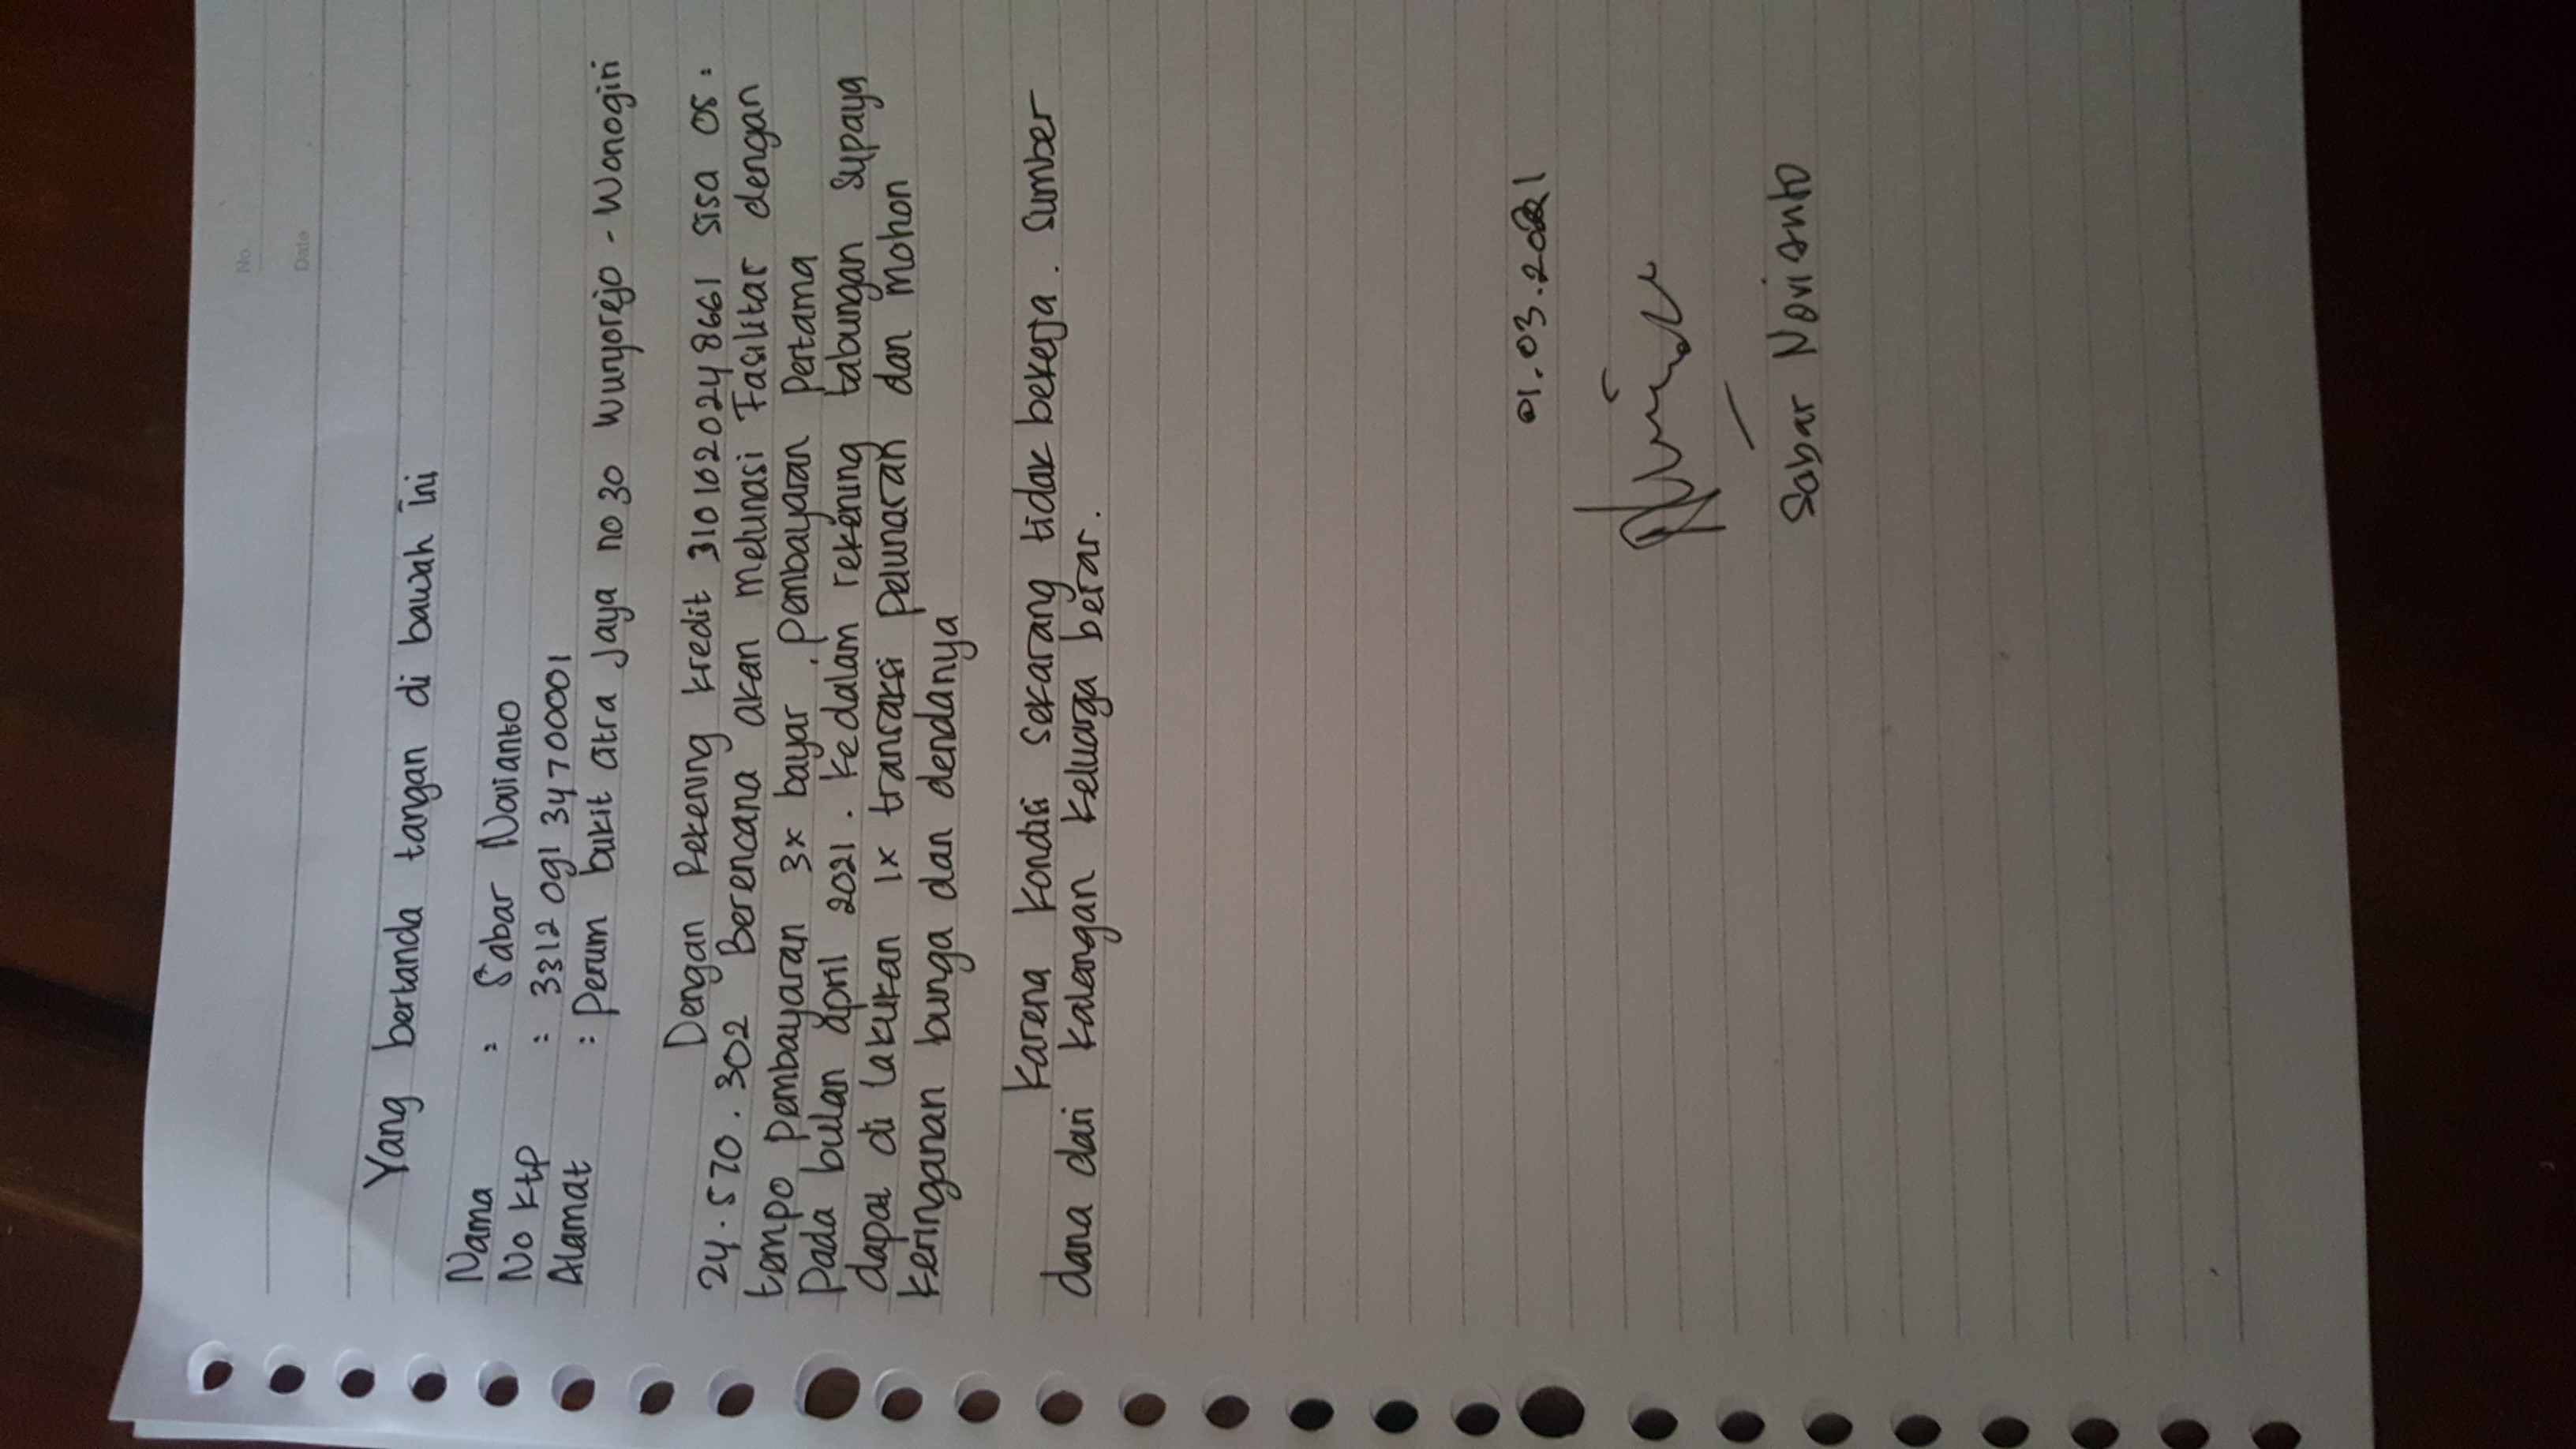 No.
Date
Yang bertanda tangan di bawah ini
Nama : Sabar Novianto
No ktp : 3312 091 347 00001
Alamat : Perum bukit citra Jaya no 30 wunyorejo - Wonogiri
Dengan Rekening kredit 310102024 8661 sisa os :
24.570.302 Berencana akan melunasi Fasilitas dengan
tempo pembayaran 3x bayar. Pembayaran Pertama
Pada bulan april 2021. Kedalam rekening tabungan supaya
dapat di lakukan 1x transaksi pelunasan dan mohon
keringanan bunga dan dendanya
Karena kondisi sekarang tidak bekerja. Sumber
dana dari kalangan keluarga besar.
01.03.2021
Sabar Novianto